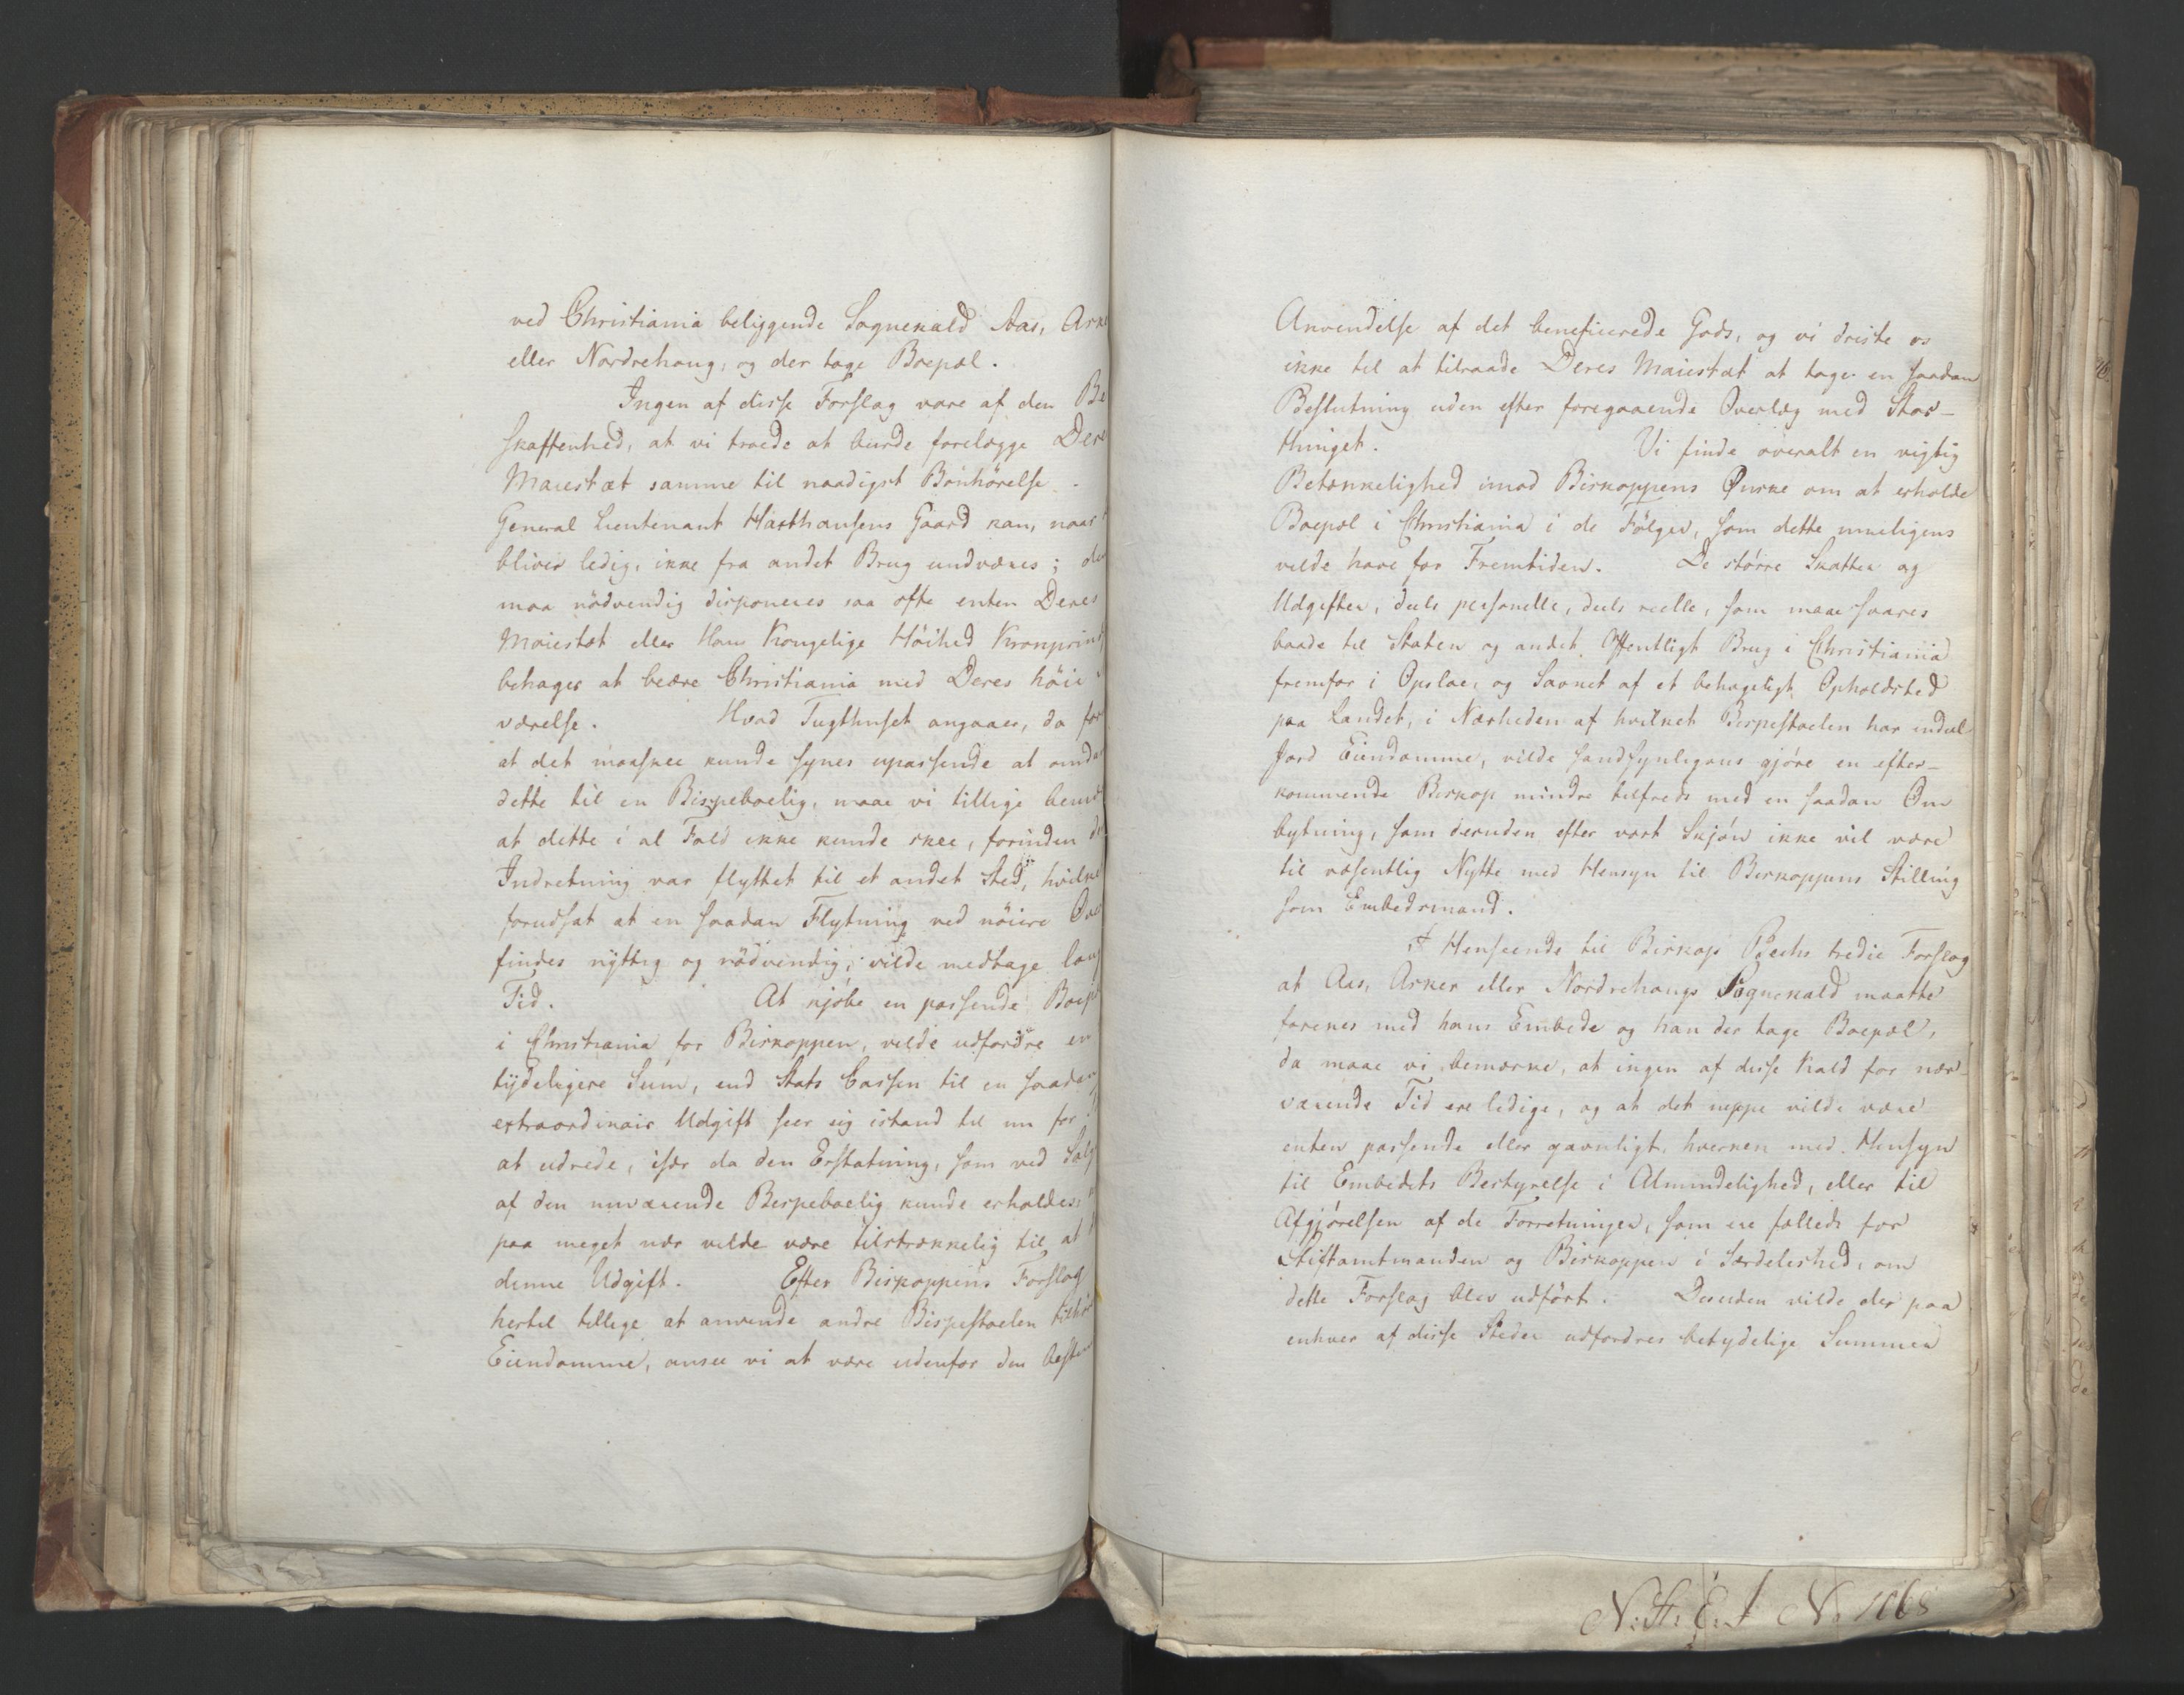 ved Christiania beliggende Sognekald Aas, Ark
eller Nordrehoug, og der tage Boepæl.
Ingen af disse Forslag vare af den Be
skaffenhed, at vi troede at burde forelægge Dere
Maiestæt samme til naadigst Bönhörelse.
General Lieutenant Haxthausens Gaard kan, naar
bliver ledig, ikke fra andet Brug undværes; de
maa nödvendig disponeres saa ofte enten Deres
Maiestæt eller Hans Kongelige Höihed Kronprint
behager at beære Christiania med Deres höie
værelse. Hvad Tugthuset angaaer, da for
at det maaskee kunde synes upassende at omda
dette til en Bispeboelig, maae vi tillige bemæ
at dette i al Fald ikke kunde skee, forinden d
Indretning var flyttet til et andet Sted, hvilke
forudsat at en saadan Flytning ved nöiere Ove
findes nyttig og nödvendig, vilde medtage lang
Tid. At kjöbe en passende Boepæ
i Christiania for Biskoppen, vilde udfordre en
tydeligere Sum, end Stats Cassen til en saadan
extraordinair Udgift seer sig istand til nu for
at udrede, især da den Erstatning, som ved Salg
af den nuværende Bispeboelig kunde erholdes,
paa meget nær vilde være tilstrækkelig til at
denne Udgift. Efter Biskoppens Forslag
hertil tillige at anvende andre Bispestoelen tilhör
Eiendomme, ansee vi at være udenfor den besten
Anvendelse af det beneficerede Gods, og vi driste os
ikke til at tilraade Deres Maiestæt at tage en saadan
Beslutning uden efter foregaaende Overlæg med Stor-
thinget. Vi finde overalt en vigtig
Betænkelighed imod Biskoppens Önske om at erholde
Boepæl i Christiania i de Fölger, som dette rimeligens
vilde have for Fremtiden. De större Skatter og
Udgifter, deels personelle, deels reelle, som maae svares
baade til Staten og andet Offentligt Brug i Christiania
fremfor i Opsloe, og Savnet af et behageligt Opholdsted
paa Landet, i Nærheden af hvilket Bispestoelen har endeel
Jord Eiendomme, vilde sandsynligens gjöre en efter-
kommende Biskop mindre tilfreds med en saadan Om
bytning, som desuden efter vort Skjön ikke vil være
til væsentlig Nytte med Hensyn til Biskoppens Stilling
som Embedsmand.
I Henseende til Biskop Bechs tredie Forslag
at Aas, Asker eller Nordrehougs Sognekald maatte
forenes med hans Embede og han der tage Boepæl,
da maae vi bemærke, at ingen af disse Kald for nær-
værende Tid ere ledige, og at det neppe vilde være
enten passende eller gavnligt, hverken med Hensyn
til Embedets Bestyrelse i Almindelighed, eller til
Afgjörelsen af de Forretninger, som ere fælleds for
Stiftamtmanden og Biskoppen i Særdeleshed, om
dette Forslag blev udfört. Desuden vilde der paa
enhver af disse Steder udfordres betydelige Summer
N: St: E: J No 1068